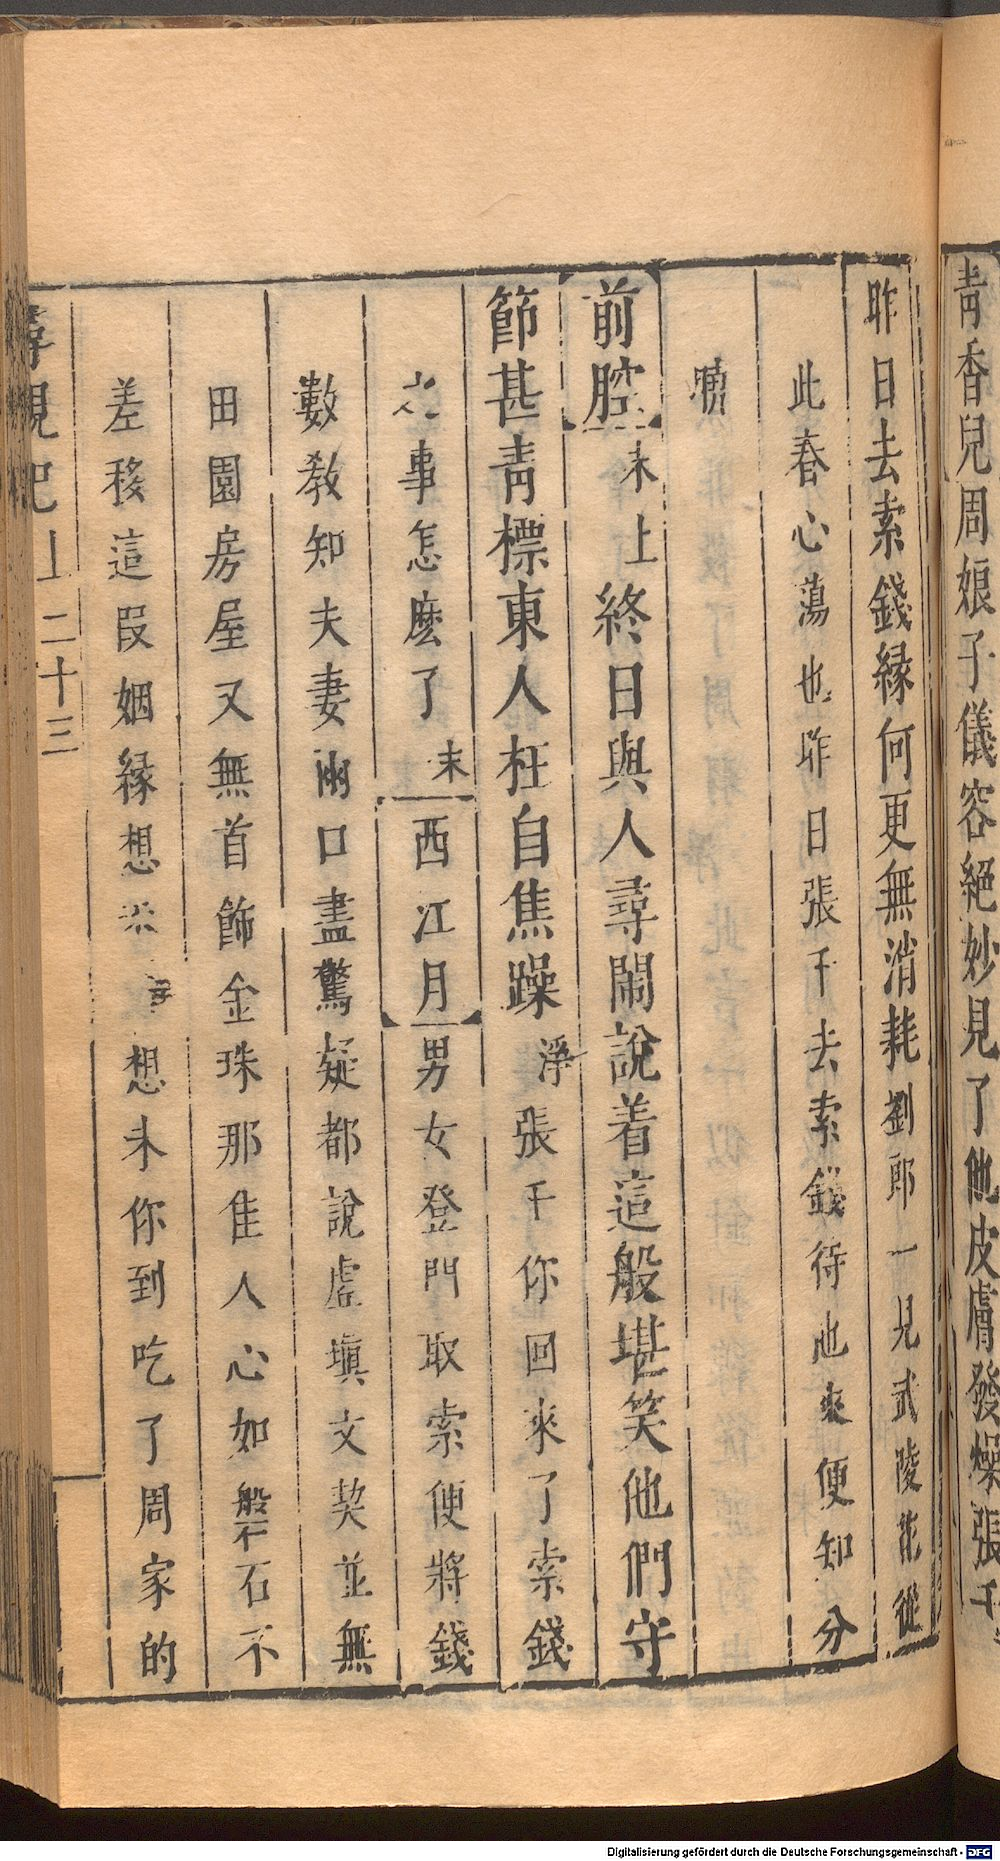 青香兒周娘子儀容絕妙見了他皮膚發燥張千
昨日去索錢縁何更無消耗劉郎一見武陵花從
此春心蕩也昨日張千去索錢待他來便知分
曉
前腔末上終日與人尋閙說着這般堪笑他們守
節甚靑標東人枉自焦躁淨張千你回來了索錢
之事怎麽了末西江月男女登門取索便將錢
數敎知夫妻兩口盡驚疑都說虛塡文契並無
田園房屋又無首飾金珠那佳人心如磐石不
差移這段姻縁想 想未你到吃了周家的
尋親記上二十三
Digitalisierung gefördert durch die Deutsche Forschungsgemeinschaft - DFG